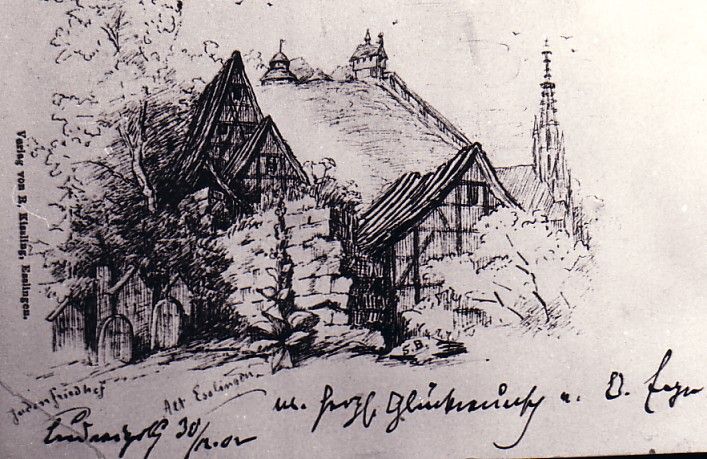 Verlag von R. Kissling, Esslingen.
S.B.
Judenfriedhof
Alt Esslingen
m. herzl. Glückwunsch u.
Ludwigsb 30/